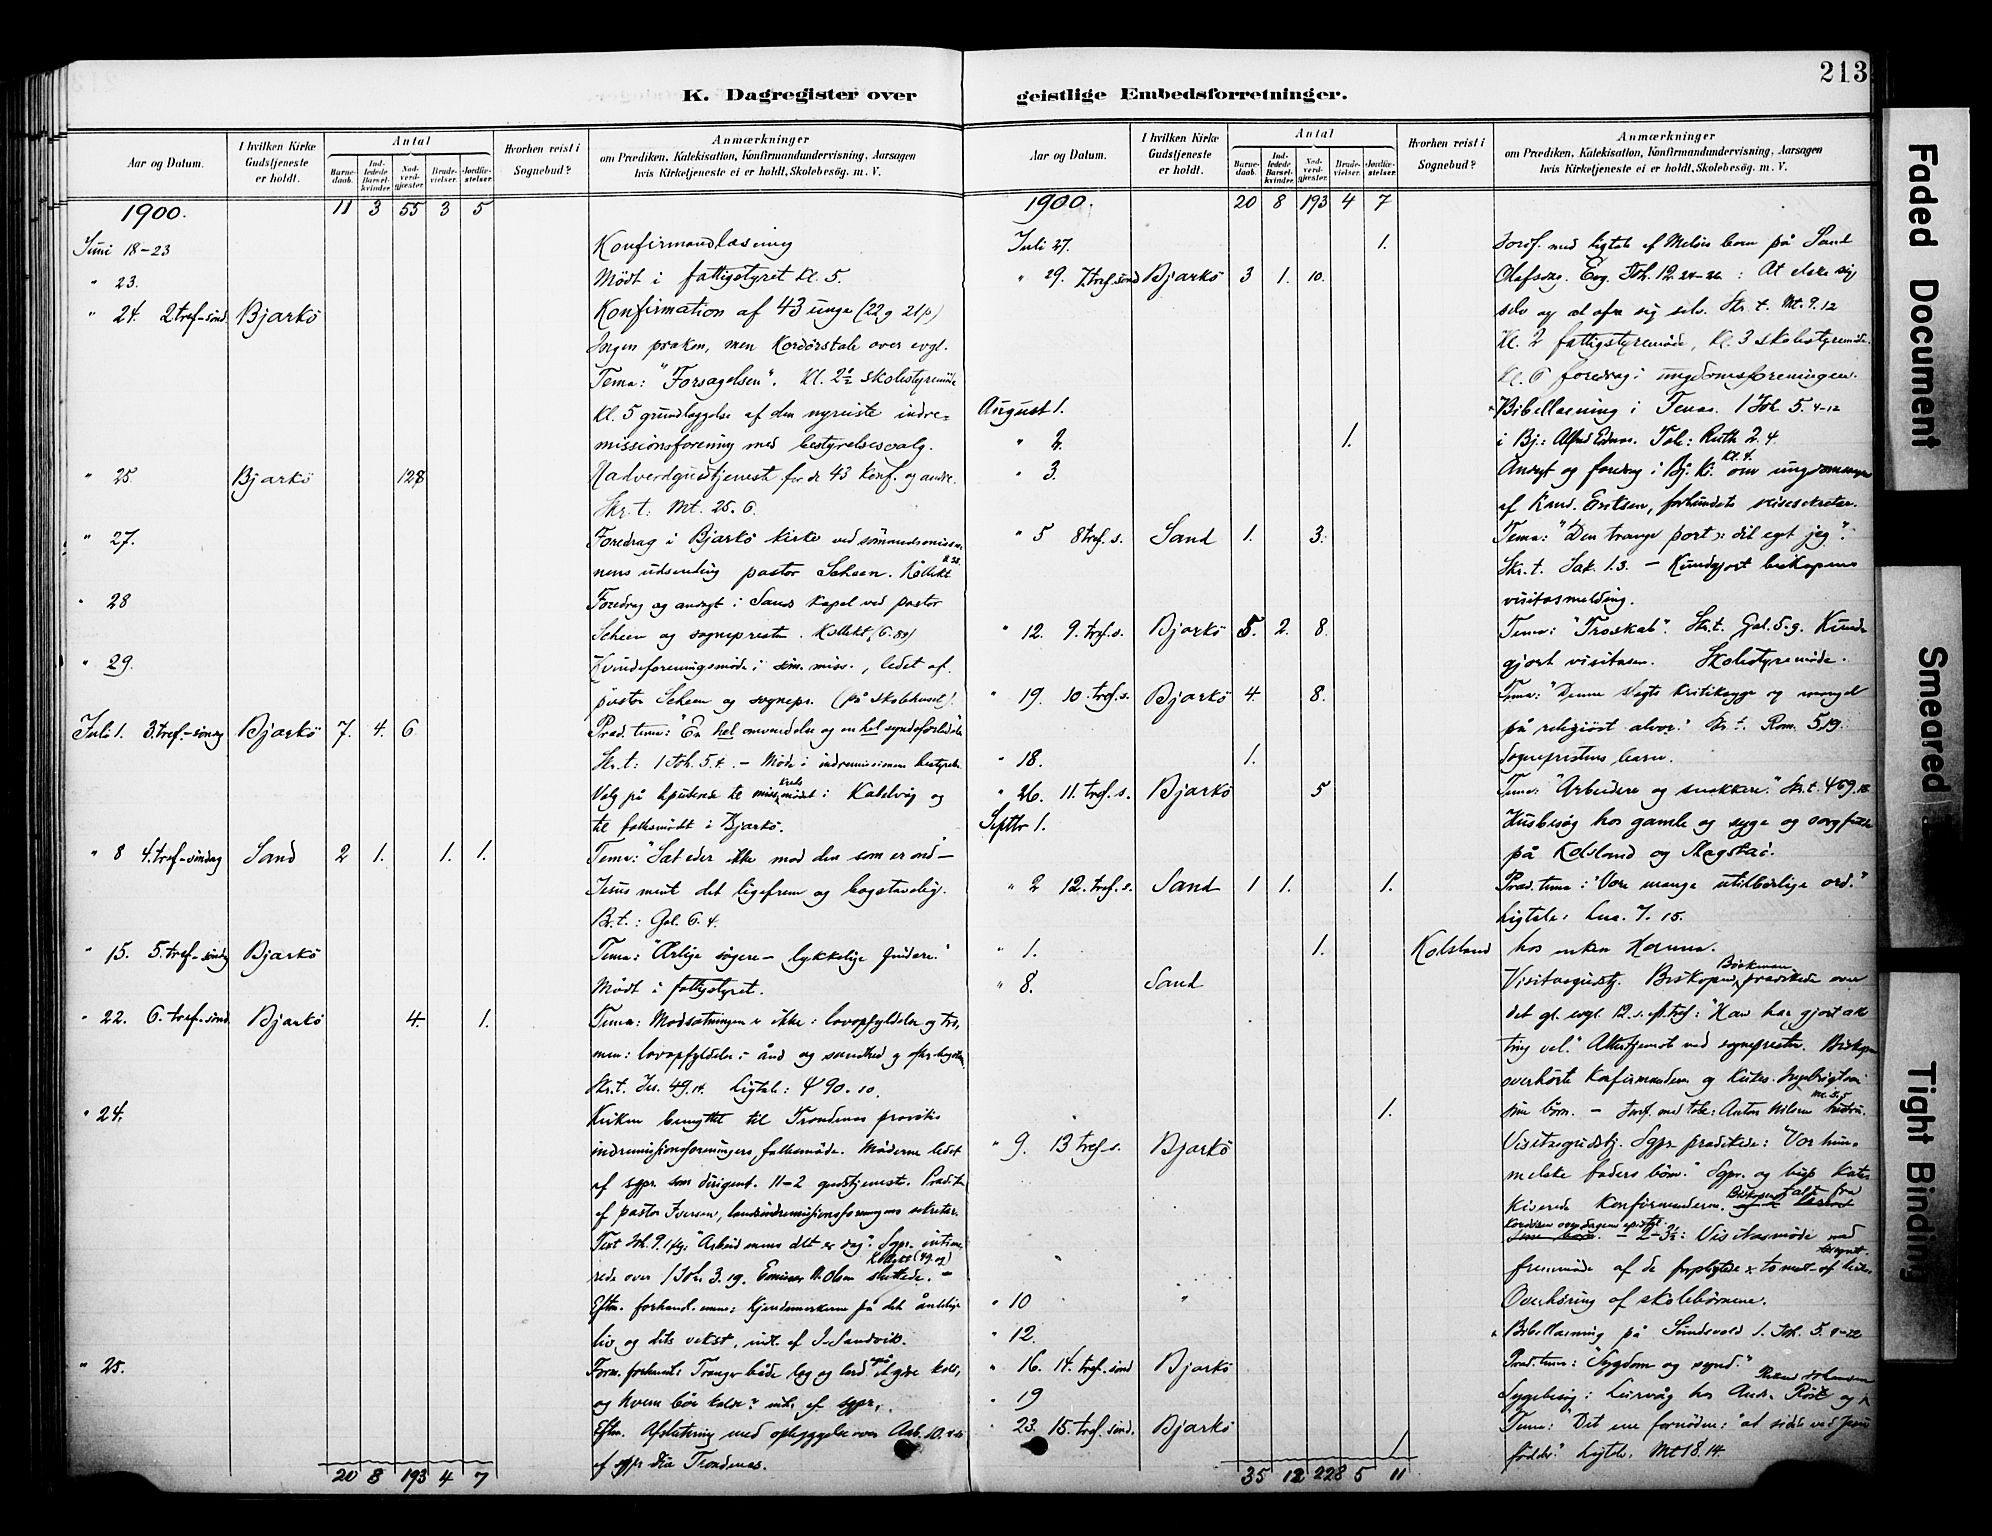 213
K. Dagregister over
Aar og Datum.
I hvilken Kirke Gudstjeneste er holdt.
Antal
Barne-daab.
Ind-ledede Barsel-kvinder.
Nad-verd-gjester.
Brude-vielser.
Jordfæ-stelser.
Hvorhen reist i Sognebud?
Anmærkninger
om Prædiken, Katekisation, Konfirmandundervisning, Aarsagen
hvis Kirketjeneste ei er holdt, Skolebesøg. m. V.
1900. 11 3 55 3 5
Juni 18-23 Konfirmandlæsning
" 23. Mødt i fattigstyret kl. 5.
" 24. 2 tref-sønd. Bjarkö Konfirmation af 43 unge (22 g 21 p)
Ingen præken, men Kordørstale over evgl.
Tema: "Forsagelsen". Kl. 2½ skolestyremöde
Kl. 5 grundlæggelse af den nyreiste indre-
missionsforening med bestyrelsesvalg.
" 25. Bjarkö 128 Nadverdgudstjenest for de 43 konf. og andre.
Skr.t: Mt. 25. 6.
" 27. Foredrag i Bjarkö kirke ved sömandsmissio-
nens udsending pastor Scheen. Kollekt
" 28 Foredrag og andagt i Sands kapel ved pastor
Scheen og sognepresten. Kollekt
" 29. Kvindeforeningsmöde i söm. miss., ledet af
pastor Scheen og sognepr. (på skolehuset).
Juli 1. 3. tref.-söndag Bjarkö 7. 4. 6. Præd. tema: "En hel omvendelse og en hel syndsforladelse"
Skr.t: 1 Joh. 5. 4. – Möde i indremissionens bestyrelse
Valg på udsendte til miss. kreds mödet i Kabelvåg og
til folkemödt i Bjarkö.
" 8 4. tref-söndag Sand 2 1. 1. 1. Tema: "Sæt eder ikke mod den som er ond –
Jesus ment det ligefrem og bogstavelig.
B.t.: Gal. 6. 4.
" 15. 5. tref-söndag Bjarkö Tema: "Ærlige sögere – lykkelige findere."
Mödt i fattigstyret.
" 22. 6. tref-sönd. Bjarkö 4. 1. Tema: Modsætningen er ikke: lovopfyldelse og tro,
men: lovopfyldelse i ånd og sandhed og efter bogstaven
Skr.t. Jes. 49. 14. Ligtale: Ψ 90. 10.
" 24. Kirken benyttet til Trondenæs provstis
indremissionsforeningers folkemöde. Möderne ledet
af sgpr. som dirigent. 11-2 gudstjeneste. Prædik.
af pastor Iversen, landsindremissionsforeningens sekretær.
Text Joh. 9. 1 flg: "Arbeid mens det er dag". Sgpr. intime-
rede over 1 Joh. 3. 19. Emissær A. Olsen sluttede. –
Eftm. forhandl. emne: Kjendemerkerne på det åndelige
liv og dets vekst, indl. af J. Sandvik.
" 25. Form. forhandl: Trænger både læg og lærd også at give kald,
og hvem bör kalde? indl. af sgpr.
Eftm. Afslutning med opbyggelse over Aab. 10.
af sgpr. fra Trondenæs.
20 8 193 4 7
geistlige Embedsforretninger.
Aar og Datum.
I hvilken Kirke Gudstjeneste er holdt.
Antal
Barne-daab.
Ind-ledede Barsel-kvinder.
Nad-verd-gjester.
Brude-vielser.
Jordfæ-stelser.
Hvorhen reist i Sognebud?
Anmærkninger
om Prædiken, Katekisation, Konfirmandundervisning, Aarsagen
hvis Kirketjeneste ei er holdt, Skolebesøg. m. V.
1900. 20 8 193 4 7
Juli 27. 1. Jordf. med ligtale af Meløis barn på Sand
" 29. 7. tref. sönd Bjarkö 3 1. 10. Olafsdag. Evg. Joh. 12. 24-26: At elske sig
selv og at ofre sig selv. Skr. t. Mt. 9. 12
Kl. 2 fattigstyremöde, kl. 3 skolestyremöde.
Kl. 6 foredrag i ungdomsforeningen.
August 1. Bibellæsning i Tenas. 1 Joh. 5. 4-12
" 2. 1. i Bj: Tale: Ruth 2. 4.
" 3. Andagt og foredrag i Bj. Ki. kl. 4. om ungdomssagen
af Kand. Eriksen, forbundets reisesekretær.
" 5 8 tref. s. Sand 1. 3. Tema: "Den trange port: dit eget jeg".
Skr. t. Sak. 1. 3. – Kundgjort biskopens
visitasmelding.
" 12. 9. tref. s. Bjarkö 5. 2. 8. Tema: "Troskab". Skr. t. Gal. 5. 9. Kund-
gjort visitasen. Skolestyremöde.
" 19. 10. tref. s. Bjarkö 4. 8. Tema: "Denne slegts kritiksyge og mangel
på religiöst alvor." Skr t. Rom. 5. 19.
" 18. 1. Sogneprestens barn.
" 26. 11. tref. s. Bjarkö 5 Tema: "Arbeidere og snakkere." Skr. t.
Septbr 1. Husbesög hos gamle og syge og sorgfulde
på Kolsland og
" 2 12. tref. s. Sand 1 1. 1. Præd. tema: "Vore mange utilbörlige ord."
Ligtale: Luc. 7. 15.
" 1. 1. Kolsland hos enken Hanna.
" 8. Sand Visitasgudstj. Biskopen Böckman prædikede over
det gl. evgl. 12. s. eft. tref: "Han har gjort alle
ting vel." Altertjenest ved sognepresten. Biskopen
overhörte konfirmanderne og
1. sine börn. – Jordf. med tale: Anton Nilsen
" 9. 13 tref. s. Bjarkö Visitasgudstj. Sgpr. prædikede: "Vor him-
melske faders börn." Sgpr. og bisp kate-
kiserede konfirmanderne. Biskopens tale fra
kordören over dagens epistel. – 2-3½: Visitasmöde med
fremmöde af de forpligtede
" 10 " Overhöring af skolebörnene.
" 12. Bibellæsning på Sundsvold 1. Joh. 5.
" 16. 14. tref. sönd Bjarkö Præd. tema: "Sygdom og synd."
" 19 Sygebesög i Leirvåg hos And. og
" 23. 15. tref. sönd. Bjarkö 1 Tema: "Det ene fornödne: at sidde ved Jesu
födder." Ligtale. Mt. 18. 14.
35 12 228 5 11
Faded Document
Smeared
Tight Binding